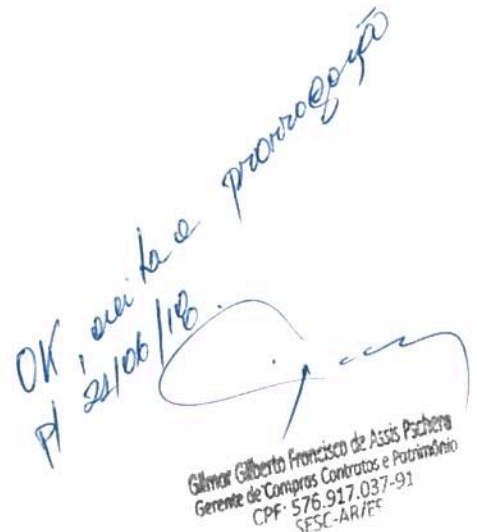 OK, aceita a prorrogação
p/ 21/06/18.
Gilmar Gilberto Francisco de Assis Pschera
Gerente de Compras Contratos e Patrimônio
CPF: 576.917.037-91
SESC-AR/ES